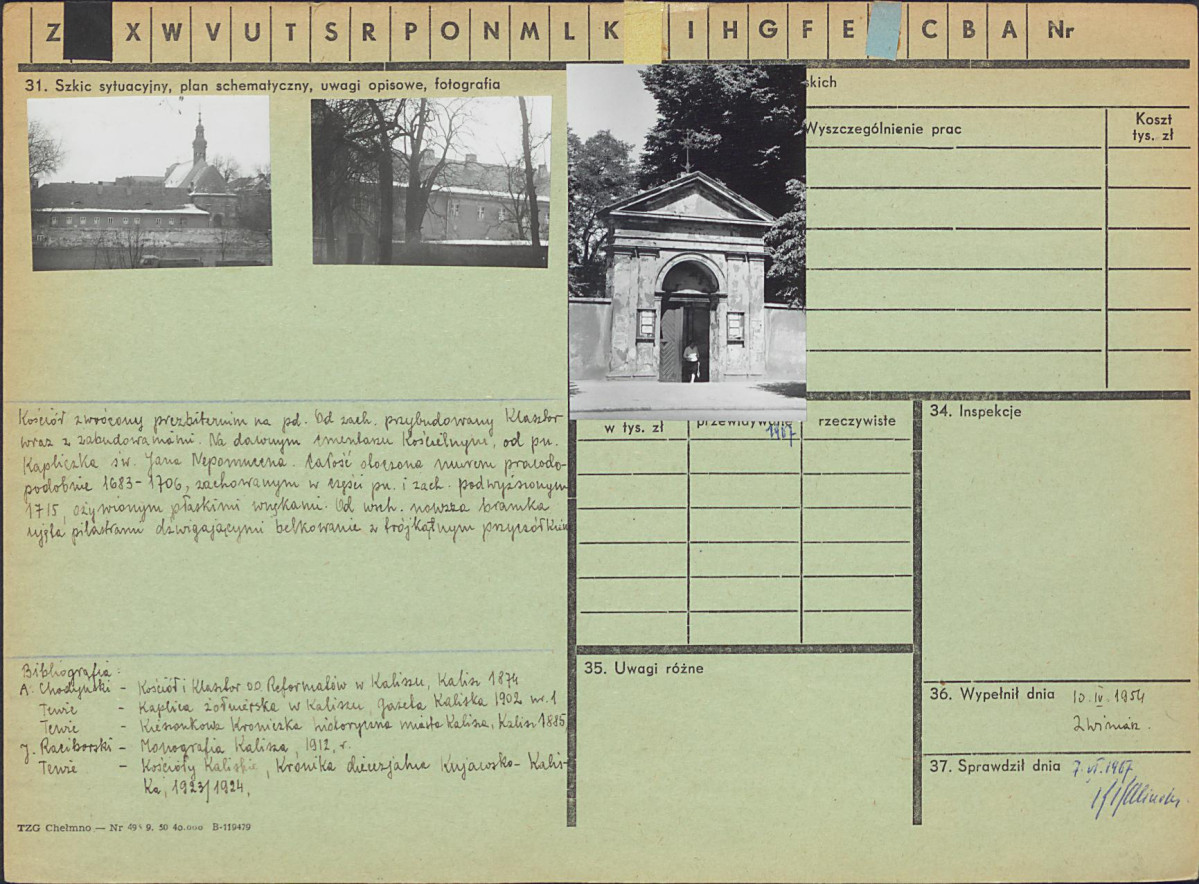 Z X W V U T S R P O N M L K I H G F E C B A Nr
31. Szkic sytuacyjny, plan schematyczny, uwagi opisowe, fotografia
skich
Wyszczególnienie prac
Koszt
tys. zł
Kościół zwrócony prezbiterium na pd. Od zach. przybudowany Klasztor
wraz z zabudowaniami. Na dawnym cmentarzu Kościelnym, od pn.
Kapliczka św. Jana Nepomucena. Całość otoczona murem prawdo-
podobnie 1683-1706, zachowanym w części pn. i zach. podwyższonym
1715, ożywionym płaskimi wnękami. Od wsch. nowsza bramka
ujęta pilastrami dźwigającymi belkowanie z trójkątnym przyczółkiem
w tys. zł
przewidywane
rzeczywiste
1967
34. Inspekcje
Bibliografia:
A. Chodyński - Kościół i Klasztor OO. Reformatów w Kaliszu, Kalisz 1874
Tenże - Kaplica żołnierska w Kaliszu, Gazeta Kaliska 1902 nr. 1
Tenże - Kieszonkowa Kroniczka historyczna miasta Kalisza, Kalisz 1885
J. Raciborski - Monografia Kalisza, 1912, r.
Tenże - Kościoły Kaliskie, Kronika diecezjalna Kujawsko-Kalis-
ka, 1923/1924,
35. Uwagi różne
36. Wypełnił dnia 10. IV. 1954
37. Sprawdził dnia 7. VI. 1967
TZG Chełmno — Nr 9. 50 40.000 B-119479